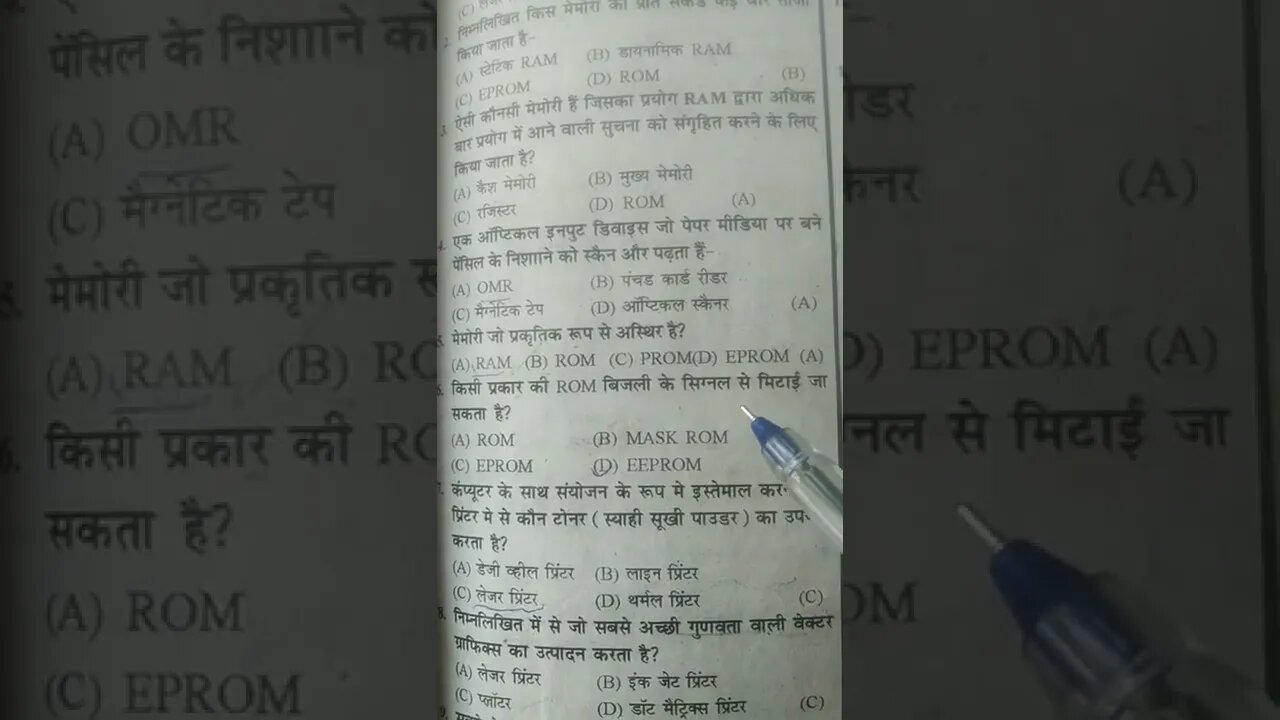 निम्नलिखित किस मेमोरी को प्रति सेकंड कई बार ताजा
किया जाता है-
(A) स्टेटिक RAM (B) डायनामिक RAM
(C) EPROM (D) ROM (B)
3. ऐसी कौनसी मेमोरी हैं जिसका प्रयोग RAM द्वारा अधिक
बार प्रयोग में आने वाली सुचना को संगृहित करने के लिए
किया जाता है?
(A) कैश मेमोरी (B) मुख्य मेमोरी
(C) रजिस्टर (D) ROM (A)
4. एक ऑप्टिकल इनपुट डिवाइस जो पेपर मीडिया पर बने
पेंसिल के निशााने को स्कैन और पढ़ता हैं-
(A) OMR (B) पंचड कार्ड रीडर
(C) मैग्नेटिक टेप (D) ऑप्टिकल स्कैनर (A)
मेमोरी जो प्रकृतिक रूप से अस्थिर है?
(A) RAM (B) ROM (C) PROM(D) EPROM (A)
6. किसी प्रकार की ROM बिजली के सिग्नल से मिटाई जा
सकता है?
(A) ROM (B) MASK ROM
(C) EPROM (D) EEPROM
7. कंप्यूटर के साथ संयोजन के रूप मे इस्तेमाल कर
प्रिंटर मे से कौन टोनर ( स्याही सूखी पाउडर ) का उप
करता है?
(A) डेजी व्हील प्रिंटर (B) लाइन प्रिंटर
(C) लेजर प्रिंटर (D) थर्मल प्रिंटर (C)
8. निम्नलिखित में से जो सबसे अच्छी गुणवता वाली वेक्टर
ग्राफिक्स का उत्पादन करता है?
(A) लेजर प्रिंटर (B) इंक जेट प्रिंटर
(C) प्लॉटर (D) डॉट मैट्रिक्स प्रिंटर (C)